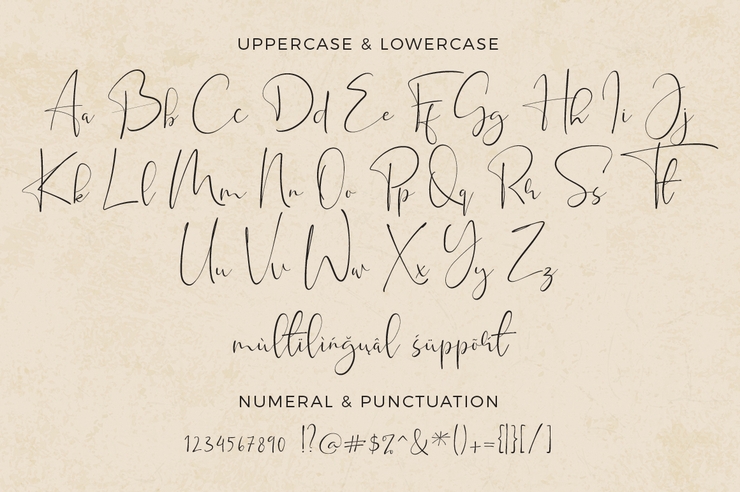 UPPERCASE & LOWERCASE
Aa Bb Cc Dd Ee Ff Gg Hh Ii Jj
Kk Ll Mm Nn Oo Pp Qq Rr Ss Tt
Uu Vv Ww Xx Yy Zz
mùltïlìńğụâl śūppōŕt
NUMERAL & PUNCTUATION
1234567890 !?@#$%^&*()+={|}[/]